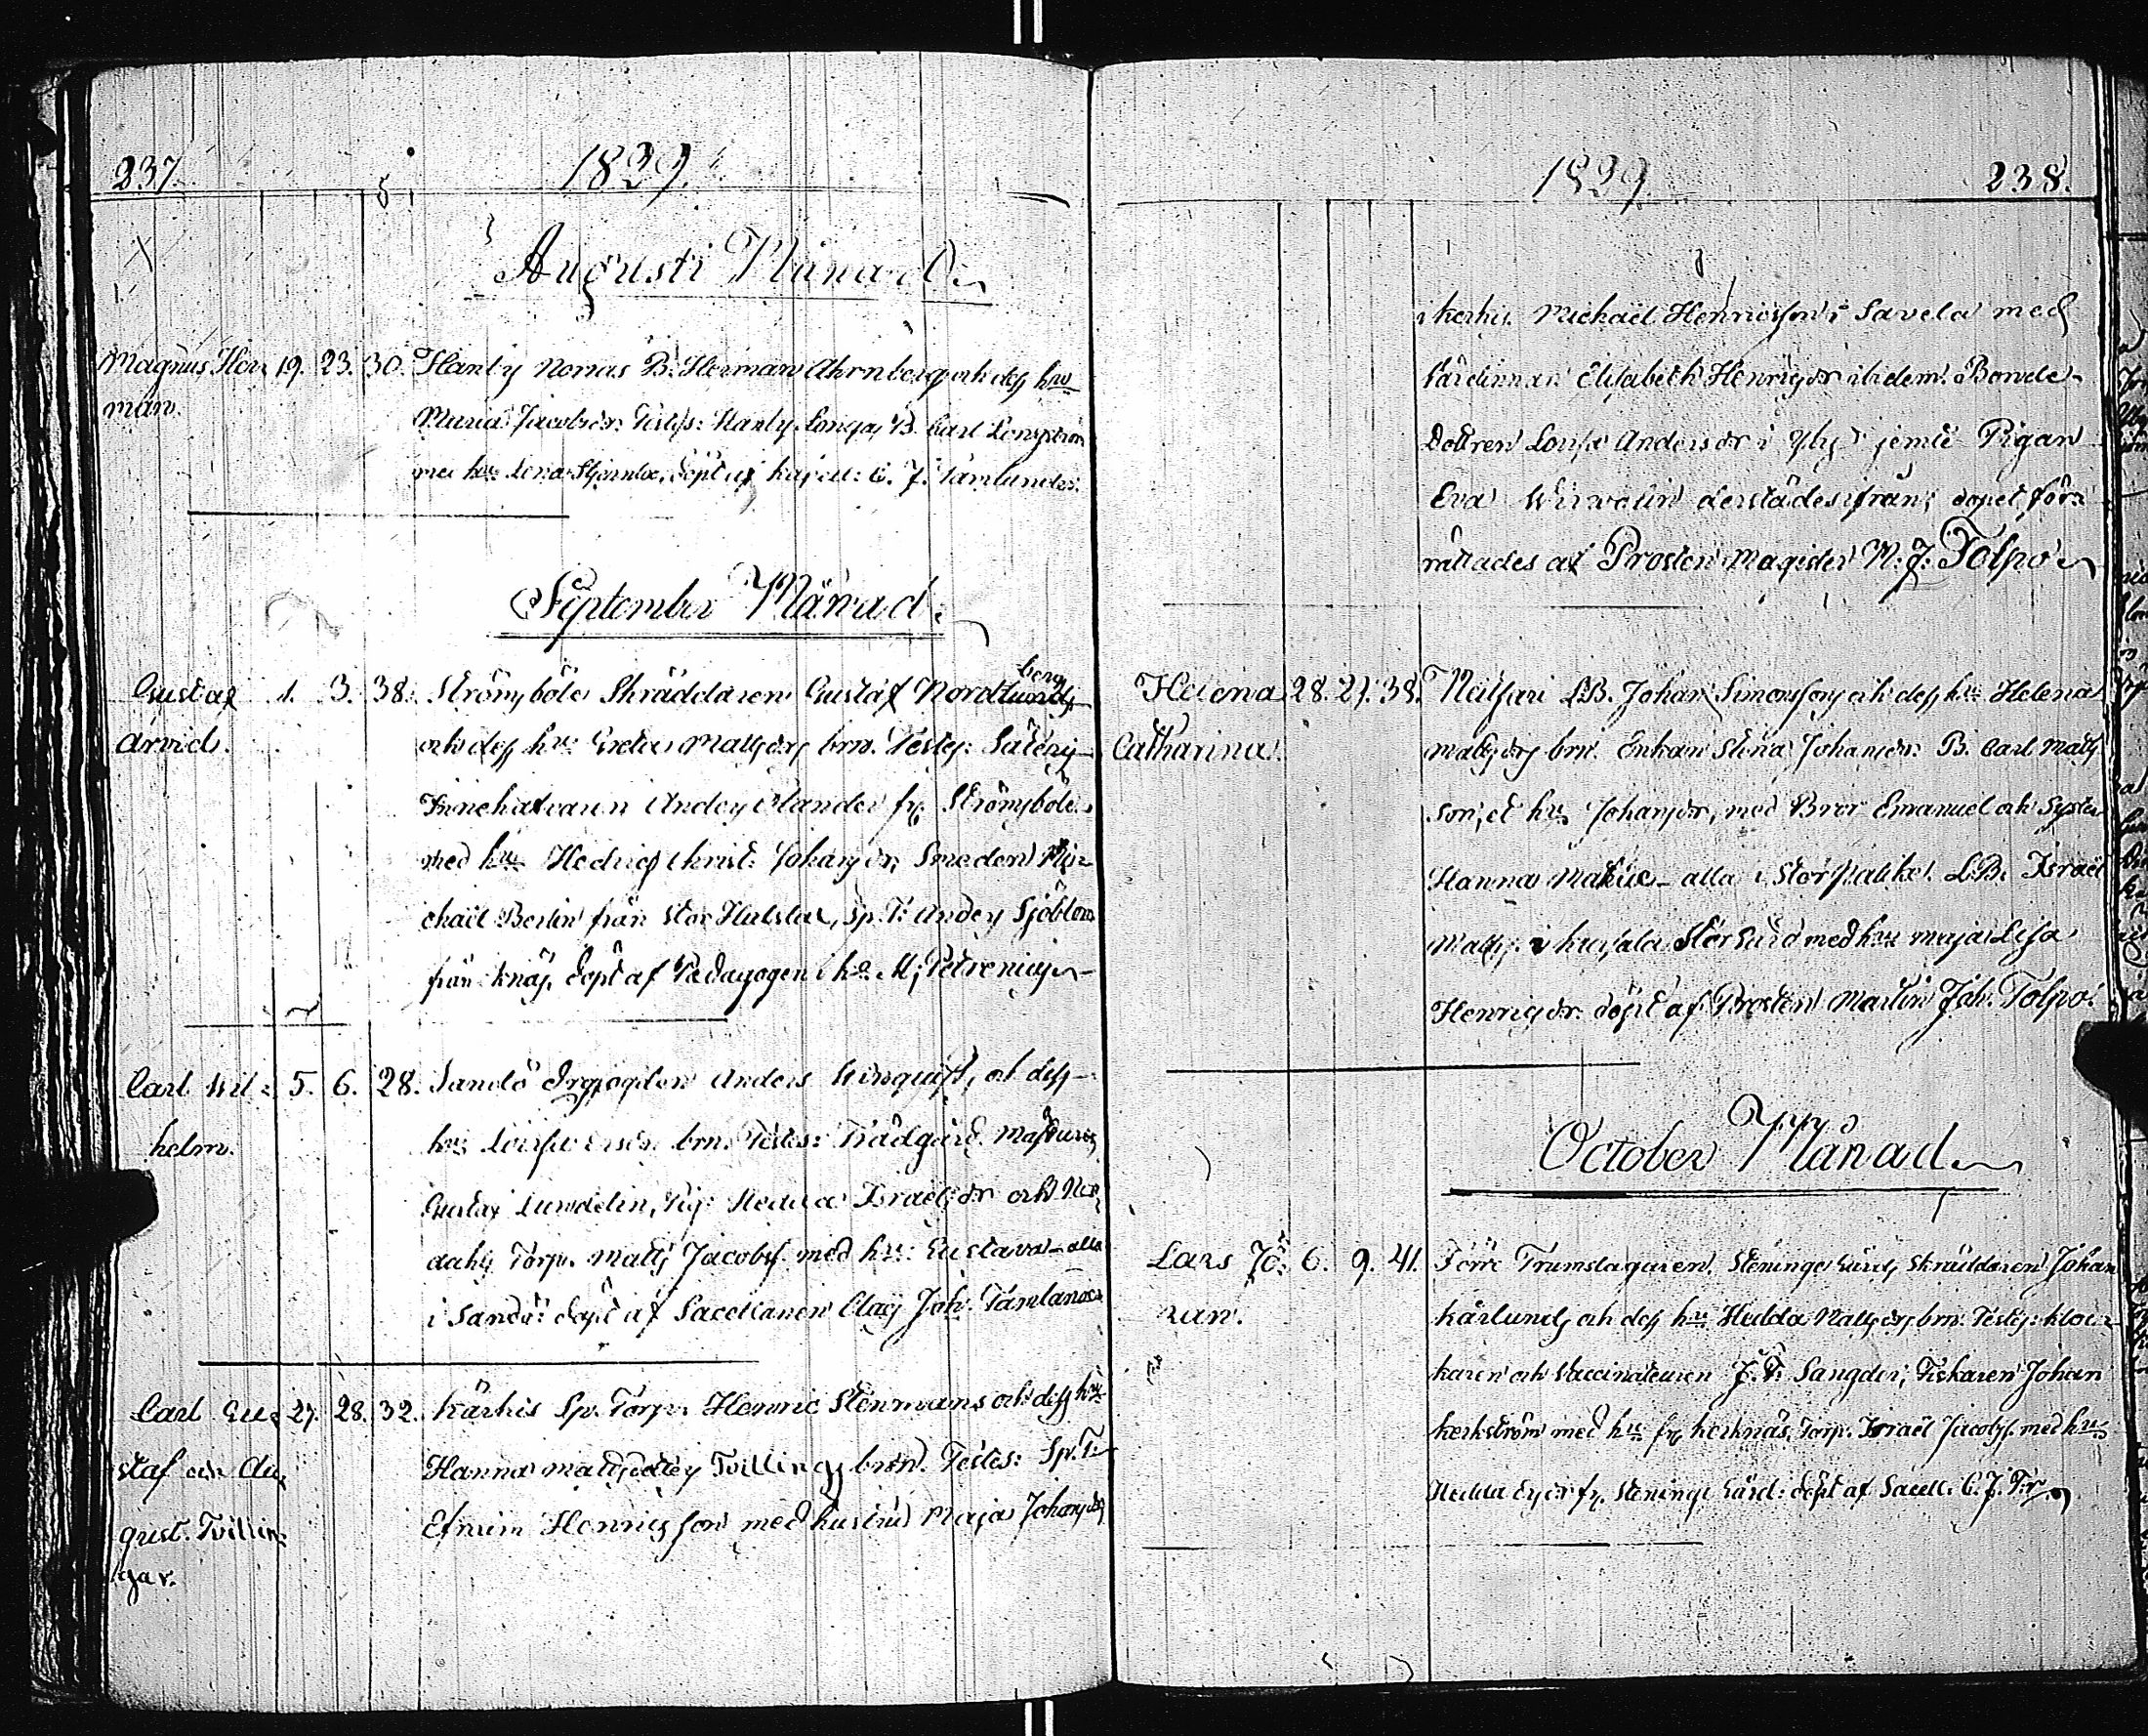 237.
1829.
Augusti Månad
Magnus Her= 19. 23. 30. Hanly Norrias B. Herman Ahrnberg och dess hu
man. Maria Jacobsdr. Testes: Hanly Longas B. Carl Lenström
med hu: Lena Stjernlöf, döpt af kapell: C. J. Tamlander.
September Månad.
berg
Gustaf 1. 3. 38. Strömsböle Skräddaren Gustaf Nordlunds
Arvid. och dess hu: Greta Mattsdrs brn. Testes:
Innehafvaren Anders Ölander fr. Strömsböle
med hu: Hedvig Christ: Johansdr, Smeden Mi=
chaël Berlin från Stor Hulsta, Sp. T: Anders Sjöblom
från Knäs, döpt af Pædagogen M: Petrenius
Carl Wil= 5. 6. 28. Sandö Anders Winquist, och dess
helm. hu: Lovisa brn. Testes: Trädgård.
Gustaf Lundelin, Pig: Hedda Israelsdr och
dahls Torp. Matts Jacobss. med hu: Gustava - alla
i Sandö: döpt af Sacellanen Claes Joh. Tamlander
Carl Gu= 27. 28. 32. Kärkis Sp. Torp. Henric Stenmans och dess hu:
staf och Au= Hanna Mattsdotters Tvillings brn. Testes: Sp. T.
gust. Tvillin= Efraim Henricsson med hustru Maja Johansdr
gar.
1829
238.
i Kerkis. Michaël Henricsson i Savela med
Värdinnan Elisabeth Henricsdr ibidem. Bonde-
Dottren Lovisa Andersdr i Yly jemte Pigan
Eva derstädes ifrån; dopet för=
rättades af Prosten Magister M. J. Tolpo
Helena 28. 29. 38. Nälsari LB. Johan Simonssons och dess hu: Helena
Catharina. Mattsdrs brn. Enkan Stina Johansdr B. Carl Matts
son, et hu: Johansdr, med Bror Emanuel och Syster
Hanna - alla i Storpaikke. LB. Israël
Matts. i Storgård med hu: Maja Lisa
Henricsdr. döpt af Prosten Martin Joh. Tolpo.
October Månad.
Lars Jo= 6. 9. 41. Förre Trumslagaren, Steninge Gård, Skräddaren Johan
han. Kårlunds och dess hu: Hedda Mattsdrs brn. Testes: Kloc=
karen och Vaccinateuren J. F. Sangder, Fiskaren Johan
Kerkström med hu: fr. Kerknäs, Torp. Israël Jacobss. med hu:
Hedda fr. Steninge Gård: döpt af Sacell. C. J. Tr.